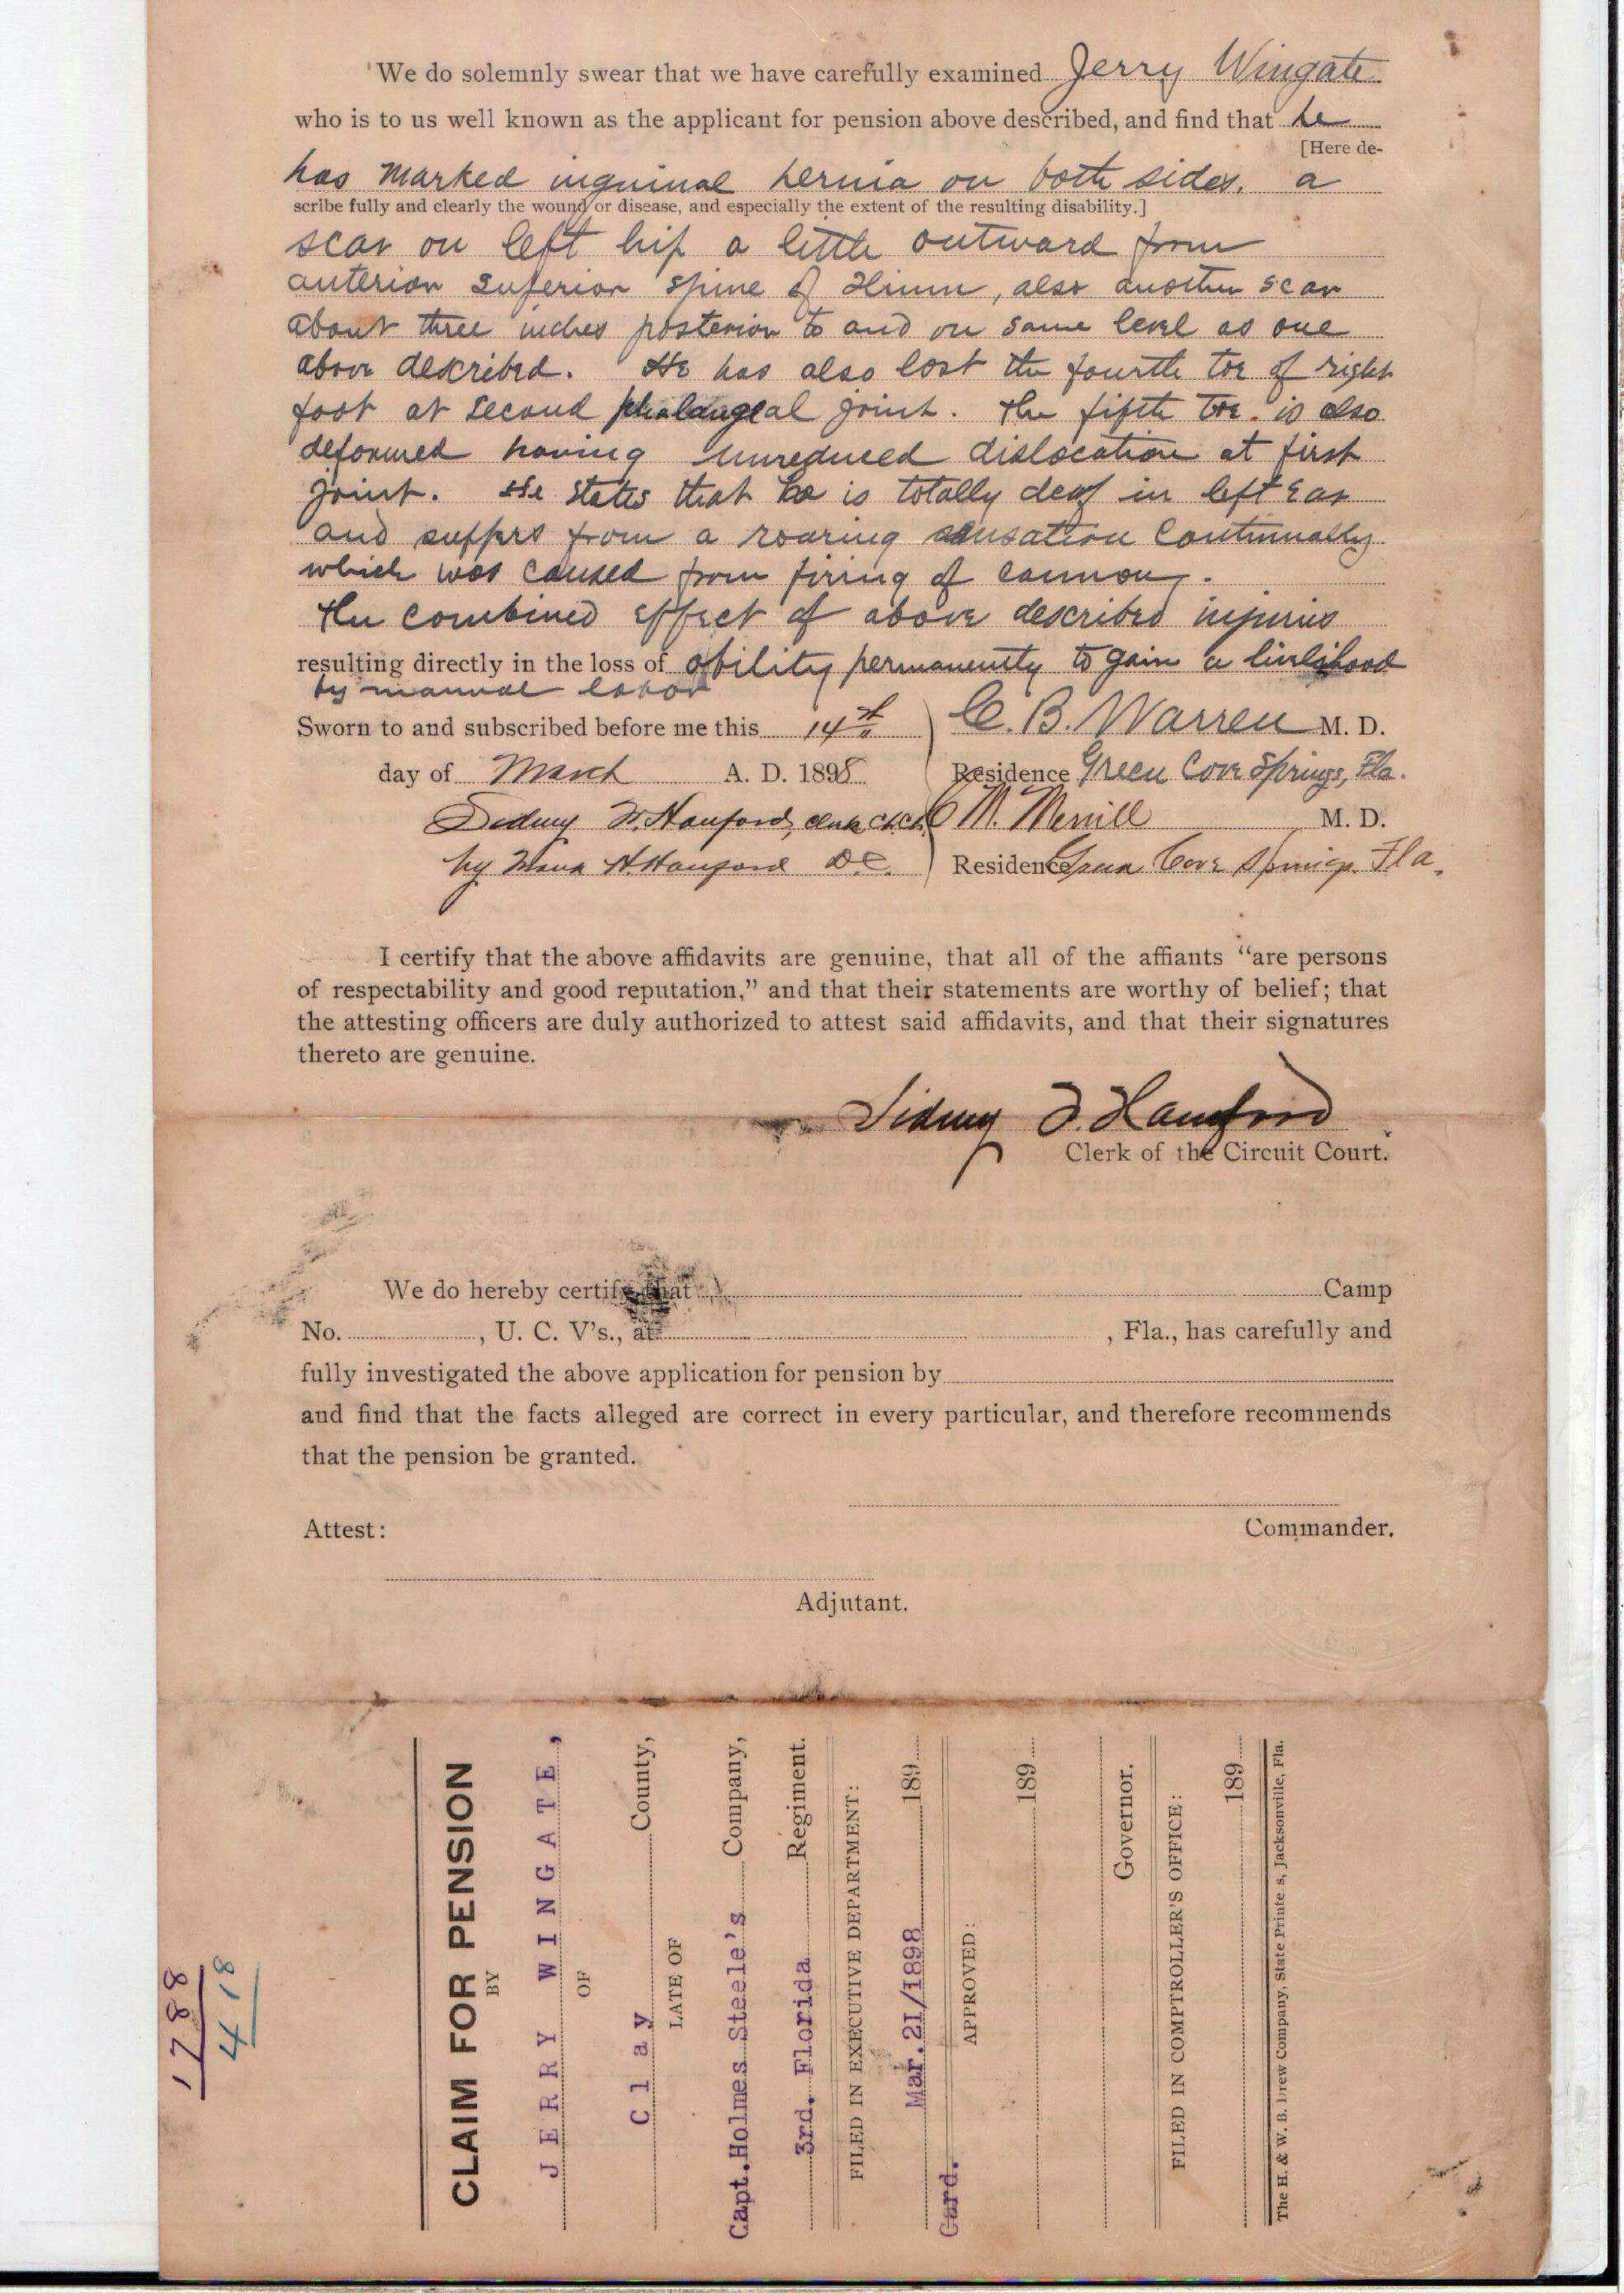 We do solemnly swear that we have carefully examined Jerry Wingate
who is to us well known as the applicant for pension above described, and find that he
[Here de-
has marked inguinal hernia on both sides. a
scribe fully and clearly the wound or disease, and especially the extent of the resulting disability.]
scar on left hip a little outward from
anterior superior spine of Ilium, also another scar
about three inches posterior to and on same level as one
above described. He has also lost the fourth toe of right
foot at second phalangeal joint. The fifth toe is also
deformed having unreduced dislocation at first
joint. He states that he is totally deaf in left ear
and suffers from a roaring sensation continually
which was caused from firing of cannon.
The combined effect of above described injuries
resulting directly in the loss of ability permanently to gain a livelihood
by manual labor
Sworn to and subscribed before me this 14th C. B. Warren M. D.
day of March A. D. 1898 Residence Green Cove Springs, Fla.
Sidney F. Hanford, Clerk C. M. Merrill M. D.
by H. Hanford D.C. Residence Green Cove Springs Fla.
I certify that the above affidavits are genuine, that all of the affiants "are persons
of respectability and good reputation," and that their statements are worthy of belief; that
the attesting officers are duly authorized to attest said affidavits, and that their signatures
thereto are genuine.
Sidney F. Hanford
Clerk of the Circuit Court.
We do hereby certify that Camp
No. , U. C. V's., at , Fla., has carefully and
fully investigated the above application for pension by
and find that the facts alleged are correct in every particular, and therefore recommends
that the pension be granted.
Attest: Commander.
Adjutant.
1788
418
CLAIM FOR PENSION
BY
JERRY WINGATE,
OF
Clay County,
LATE OF
Capt. Holmes Steele's Company,
3rd. Florida Regiment.
FILED IN EXECUTIVE DEPARTMENT:
Mar. 21/1898 189
Gard.
APPROVED:
189
Governor.
FILED IN COMPTROLLER'S OFFICE:
189
The H. & W. B. Drew Company, State Printers, Jacksonville, Fla.